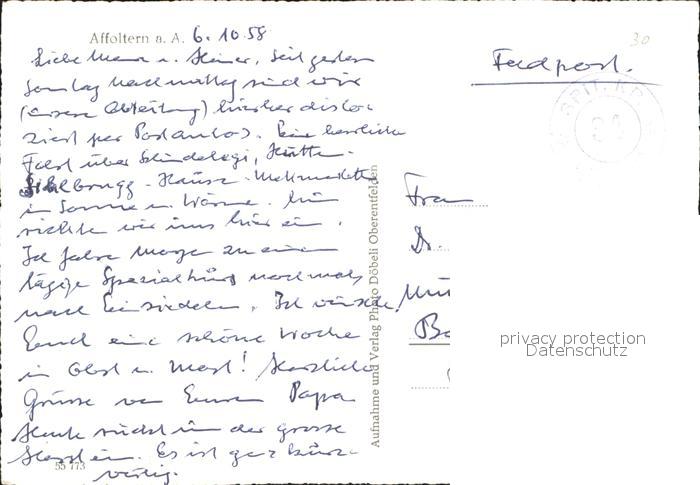 Affoltern a. A. 6. 10. 58
30
Liebe Mama u. Heiner, Seit gestern
Sonntag Nachmittag sind wir
(unsere Abteilung) hierher dislo-
ziert per Postautos. Eine herrliche
Fahrt über Schindellegi, Hütten-
Sihlbrugg - Hausen - Mettmenstetten
in Sonne u. Wärme. Nun
richten wir uns hier ein.
Ich fahre Morgen zu einem
tägigen Spezialkurs nochmals
nach Einsiedeln. Ich wünsche
Euch eine schöne Woche
in Obst u. Most! Herzliche
Grüsse von Eurem Papa
Heute rückt der grosse
ein. Es ist ganz kurz-
weilig.
55 773
Aufnahme und Verlag Photo Döbeli Oberentfelden
Feldpost.
SPIT. KP.
Frau
Dr.
privacy protection
Datenschutz